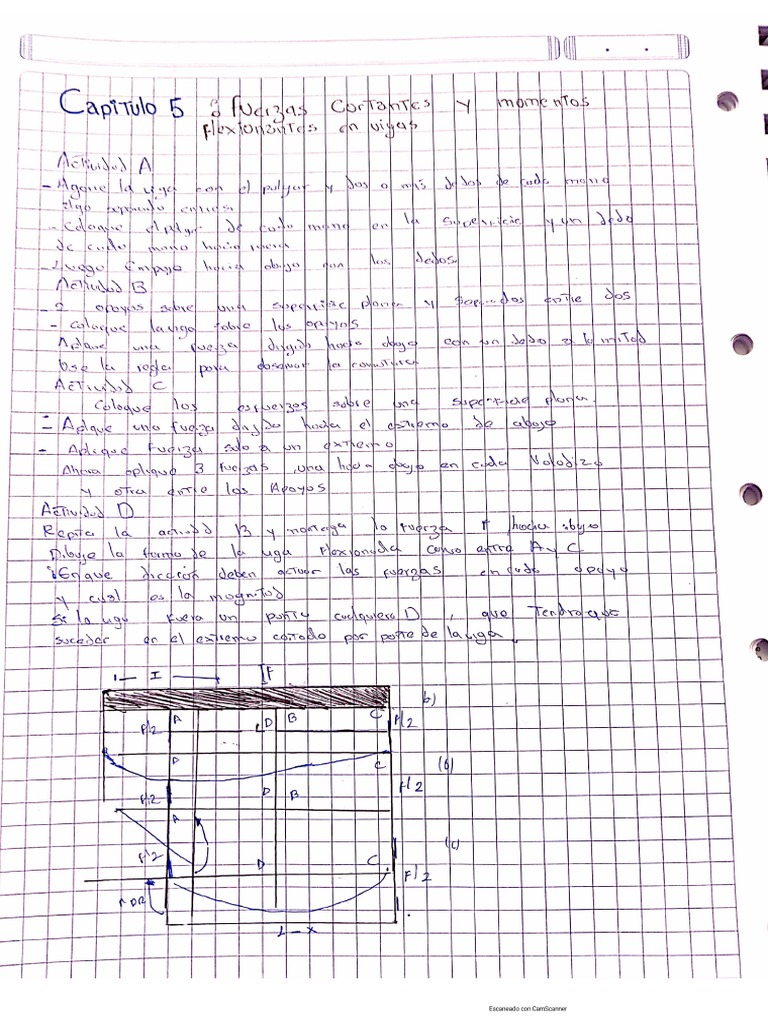 Capitulo 5 : fuerzas Cortantes y momentos
flexionantes en vigas
Actividad A
- Agarre la viga con el pulgar y dos o más dedos de cada mano
algo
- Coloque el pulgar de cada mano en la superficie y un dedo
de cada mano hacia
- Luego empuje hacia abajo con los dedos.
Actividad B
- 2 apoyos sobre una superficie plana y separados entre dos
- Coloque la viga sobre los apoyos
Aplique una fuerza dirigida hacia abajo con un dedo a la mitad
Use la regla para observar la
Actividad C
Coloque los esfuerzos sobre una superficie plana.
- Aplique una fuerza dirigida hacia el extremo de abajo
- Aplique fuerza solo a un extremo
Ahora aplique 3 fuerzas, una hacia abajo en cada
y otra entre los Apoyos
Actividad D
Repita la actividad B y mantenga la fuerza hacia abajo
Dibuje la forma de la viga flexionada como entre A y C
¿En que dirección deben actuar las fuerzas en cada apoyo
y cual es la magnitud
Si la viga fuera un punto cualquiera D, que Tendra que
suceder en el extremo cortado por parte de la viga.
I F
b)
A D B C
F/2 F/2
D C (b)
F/2 D B F/2
A
(c)
F/2 D C F/2
L - x
Escaneado con CamScanner